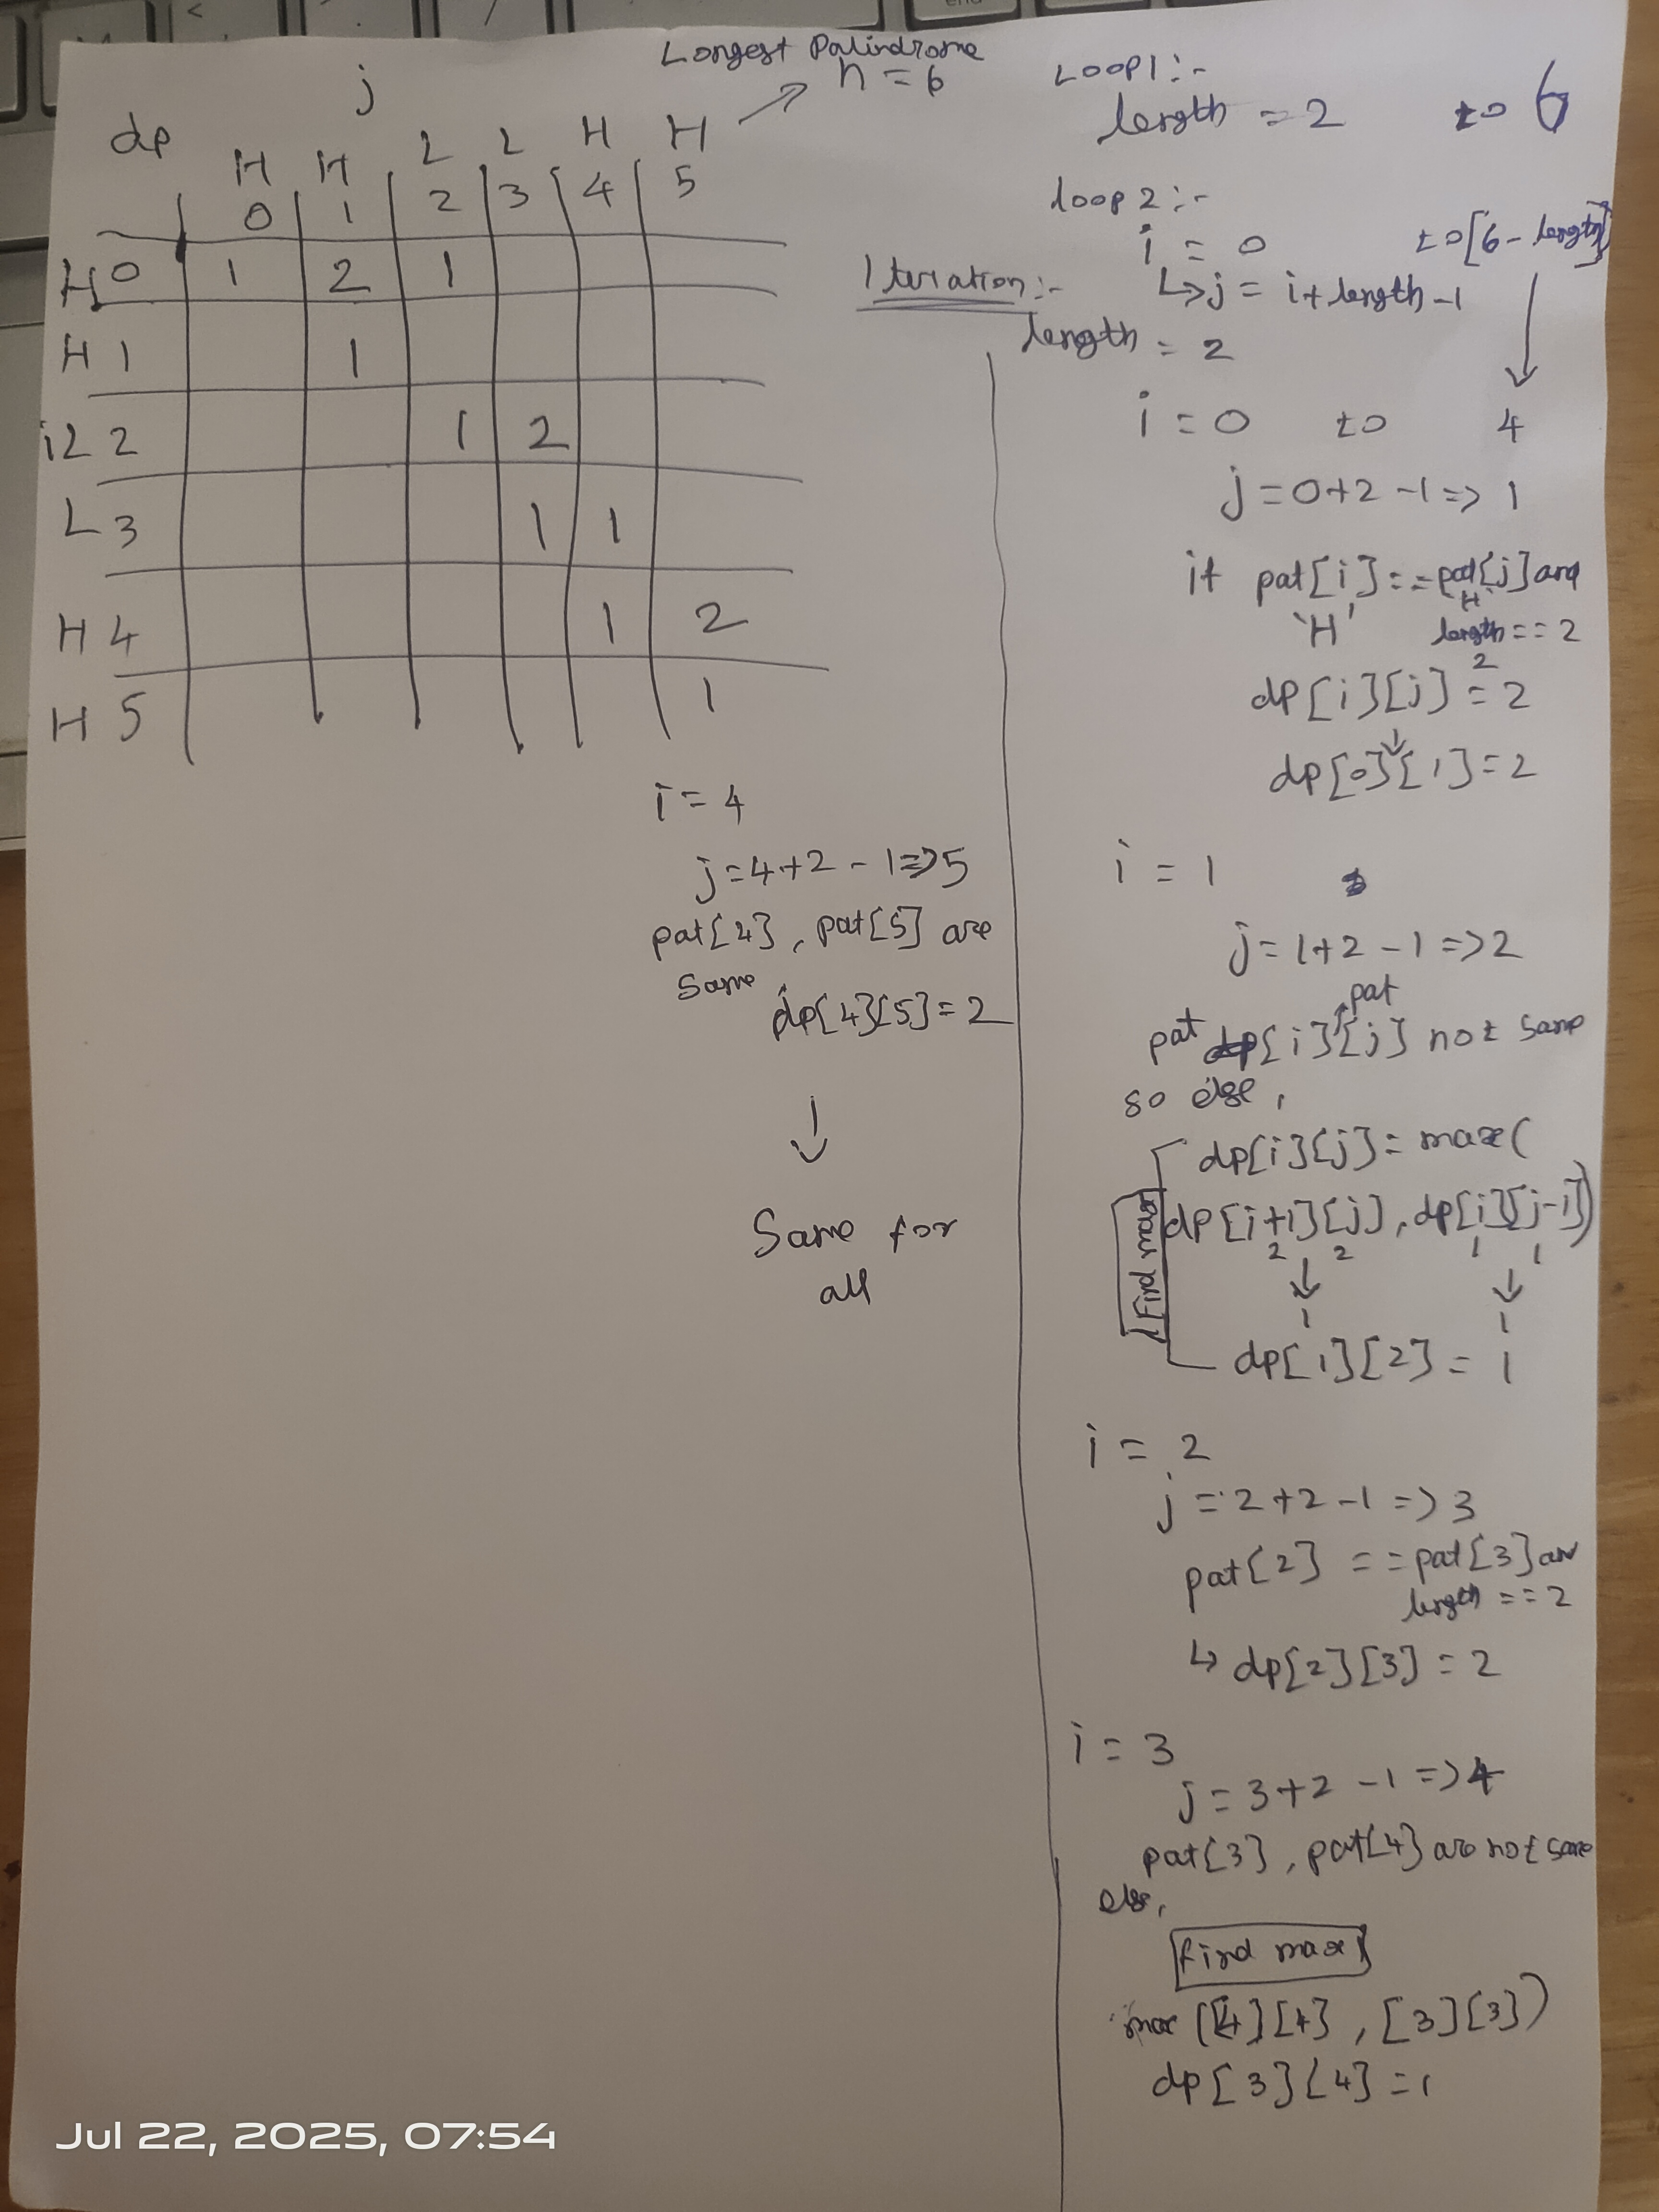 Longest Palindrome
n = 6
j
dp
H H L L H H
0 1 2 3 4 5
H 0 1 2 1
H 1 1
i L 2 1 2
L 3 1 1
H 4 1 2
H 5 1
Loop1:-
length = 2 to 6
loop 2:-
i = 0 to [6 - length]
↳ j = i + length - 1
Iteration:-
length = 2
i = 0 to 4
j = 0 + 2 - 1 => 1
if pat[i] == pat[j] and
'H' 'H'
length == 2
2
dp[i][j] = 2
↓
dp[0][1] = 2
i = 1
j = 1 + 2 - 1 => 2
pat
pat [i] [j] not same
so else,
dp[i][j] = max(
dp[i+1][j], dp[i][j-1])
2 2 1 1
↓ ↓
1 1
Find max
dp[1][2] = 1
i = 2
j = 2 + 2 - 1 => 3
pat[2] == pat[3] an
length == 2
↳ dp[2][3] = 2
i = 3
j = 3 + 2 - 1 => 4
pat[3], pat[4] are not same
else,
Find max
max ([4][4], [3][3])
dp[3][4] = 1
i = 4
j = 4 + 2 - 1 => 5
pat[4], pat[5] are
same
dp[4][5] = 2
↓
Same for
all
Jul 22, 2025, 07:54